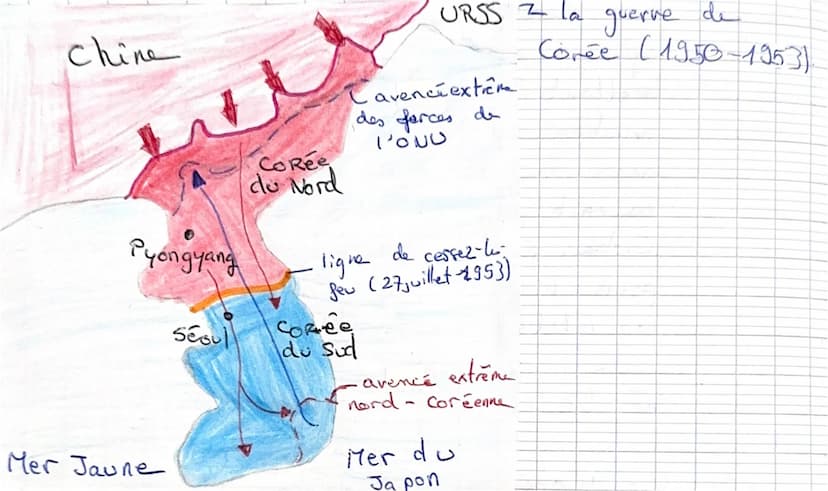 URSS
2 la guerre de
Corée (1950-1953)
Chine
avencé extrême
des forces de
l'ONU
Corée
du Nord
Pyongyang
ligne de cessez-le-
feu (27 juillet 1953)
Séoul
Corée
du Sud
avencé extrême
nord-coréenne
Mer Jaune
Mer du
Japon